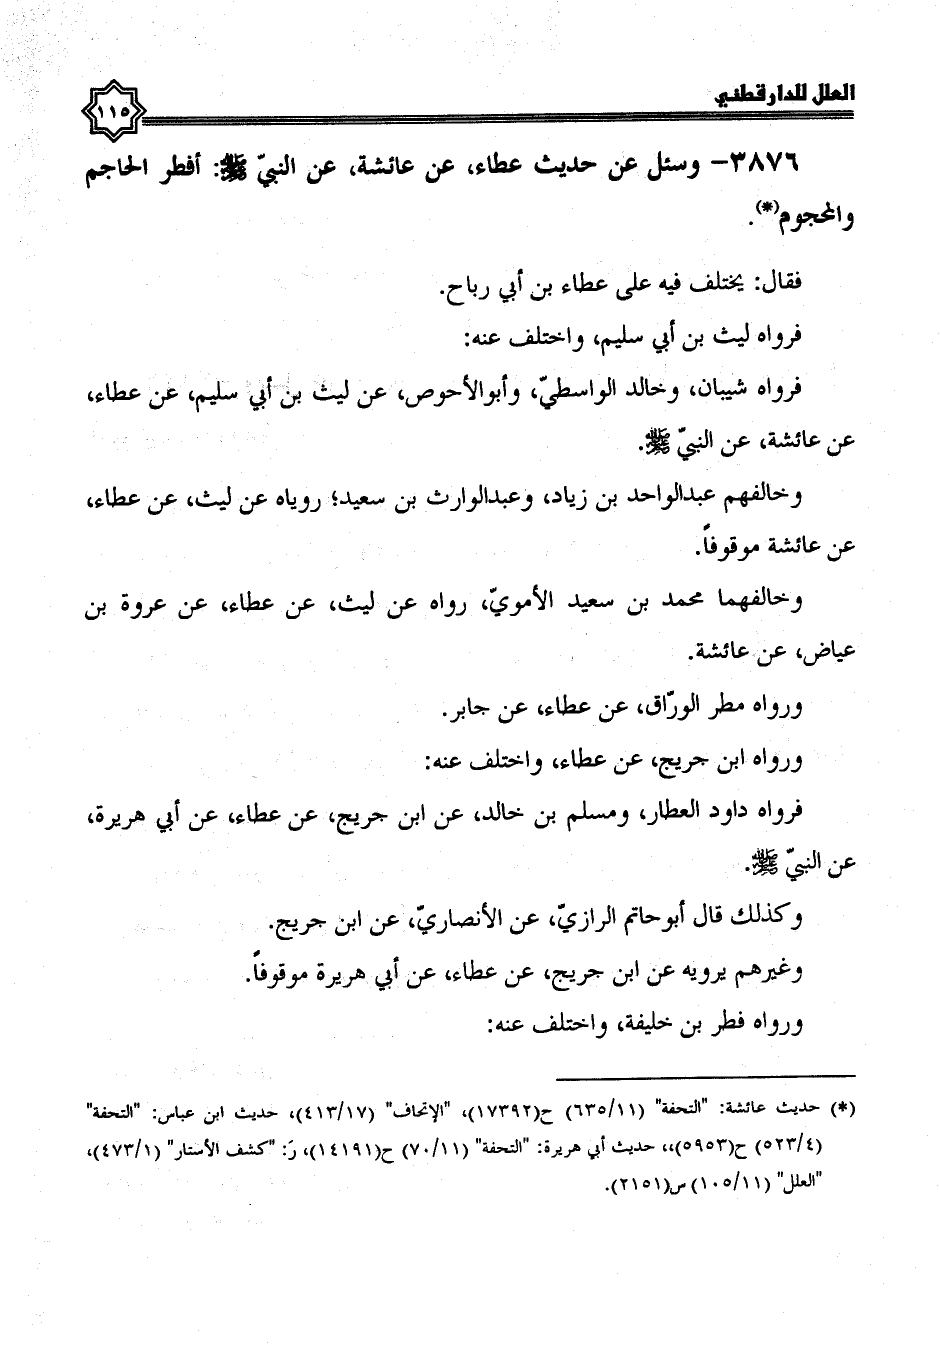 العلل للدارقطني
١١٥
٣٨٧٦- وسئل عن حديث عطاء، عن عائشة، عن النبيّ ﷺ: أفطر الحاجم
والمحجوم(*).
فقال: يختلف فيه على عطاء بن أبي رباح.
فرواه ليث بن أبي سليم، واختلف عنه:
فرواه شيبان، وخالد الواسطيّ، وأبوالأحوص، عن ليث بن أبي سليم، عن عطاء،
عن عائشة، عن النبيّ ﷺ.
وخالفهم عبدالواحد بن زياد، وعبدالوارث بن سعيد؛ روياه عن ليث، عن عطاء،
عن عائشة موقوفاً.
وخالفهما محمد بن سعيد الأمويّ، رواه عن ليث، عن عطاء، عن عروة بن
عياض، عن عائشة.
ورواه مطر الورّاق، عن عطاء، عن جابر.
ورواه ابن جريج، عن عطاء، واختلف عنه:
فرواه داود العطار، ومسلم بن خالد، عن ابن جريج، عن عطاء، عن أبي هريرة،
عن النبيّ ﷺ.
وكذلك قال أبوحاتم الرازيّ، عن الأنصاريّ، عن ابن جريج.
وغيرهم يرويه عن ابن جريج، عن عطاء، عن أبي هريرة موقوفاً.
ورواه فطر بن خليفة، واختلف عنه:
(*) حديث عائشة: "التحفة" (٦٣٥/١١) ح(١٧٣٩٢)، "الإتحاف" (٤١٣/١٧)، حديث ابن عباس: "التحفة"
(٥٢٣/٤) ح(٥٩٥٣)،، حديث أبي هريرة: "التحفة" (٧٠/١١) ح(١٤١٩١)، رَ: "كشف الأستار" (٤٧٣/١)،
"العلل" (١٠٥/١١) س(٢١٥١).